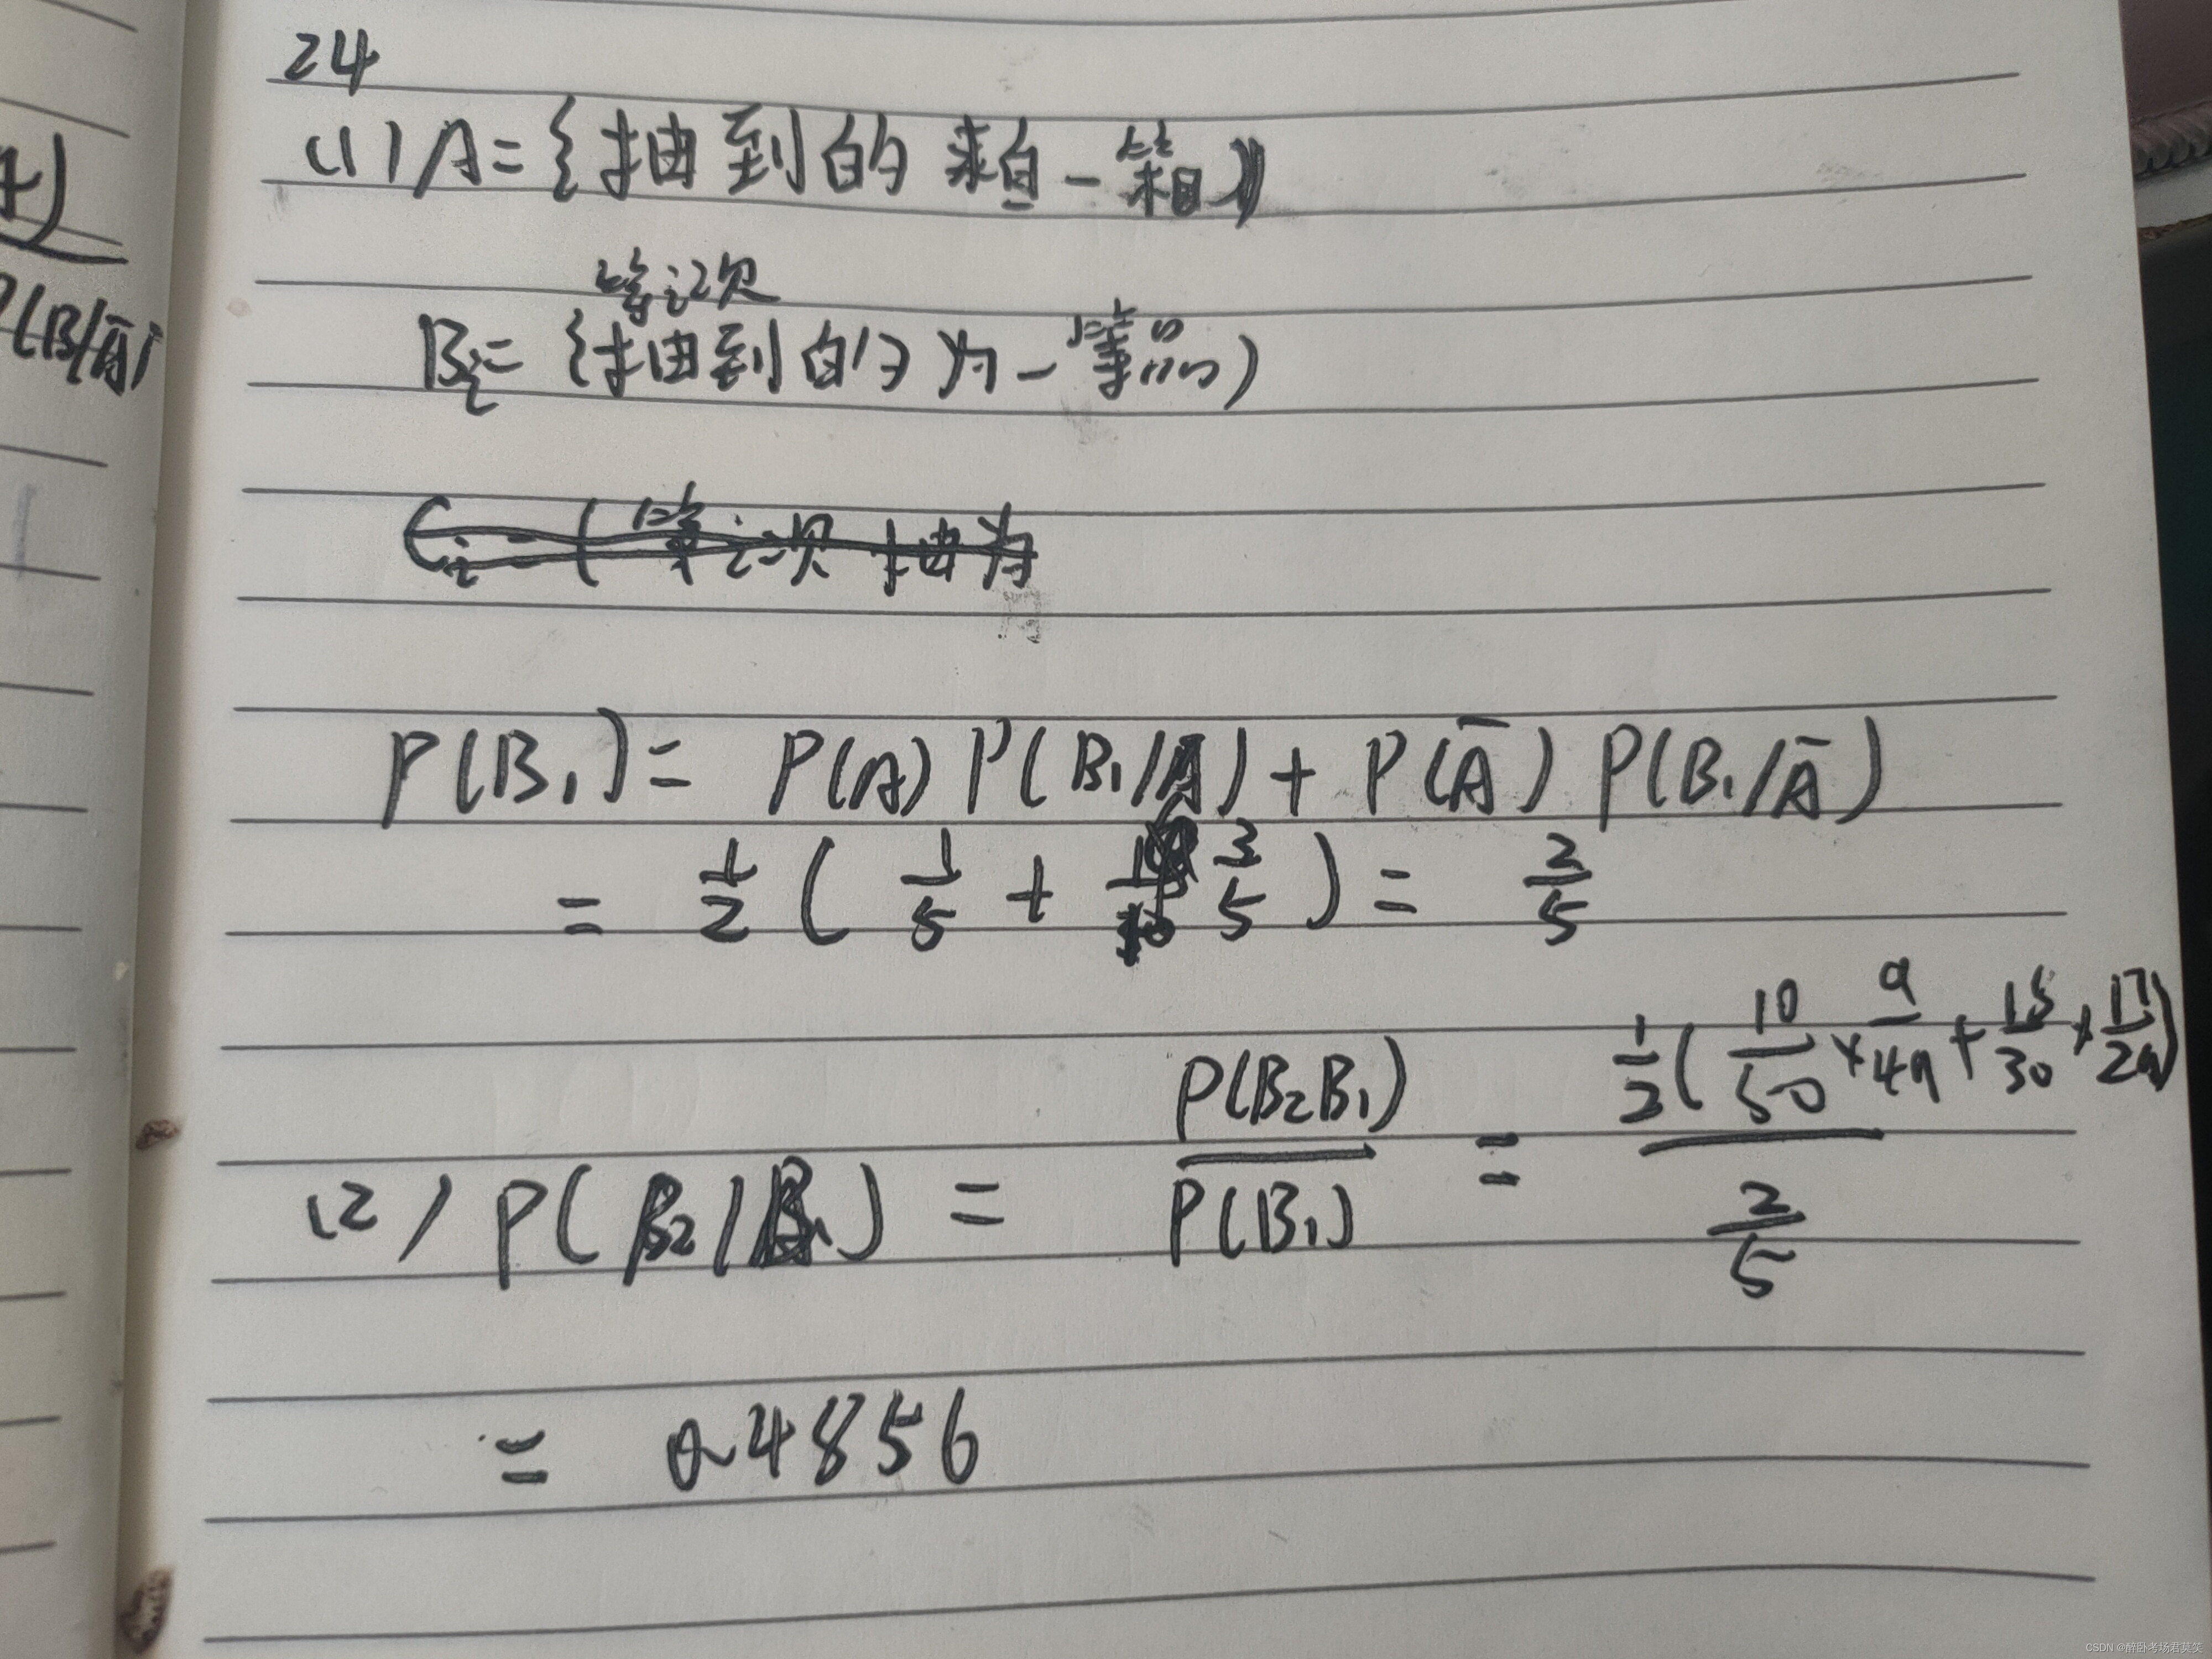 A)
P(B/Ā)
24
(1) A={抽到的来自一箱}
第i次
Bi={抽到的为一等品}
Ci=(第i次抽为
P(B₁)= P(A)P(B₁/A)+P(Ā)P(B₁/Ā)
= 1/2 ( 1/5 + 3/5 ) = 2/5
(2) P(B₂/B₁) = P(B₂B₁)/P(B₁) = 1/2(10/50×9/49+18/30×17/29) / 2/5
= 0.4856
CSDN @醉卧考场君莫笑